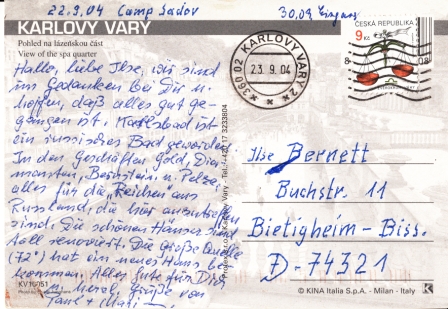 22.9.04 Camp Sadov
30.09 Eingang
KARLOVY VARY
Pohled na lázeňskou část
View of the spa quarter
Hallo, liebe Ilse, wir sind
in Gedanken bei Dir u.
hoffen, daß alles gut ge-
gangen ist. Karlsbad ist
ein russisches Bad geworden.
In den Geschäften Gold, Dia-
manten, Bernstein u. Pelze,
alles für die "Reichen" aus
Russland, die hier anzutreffen
sind. Die schönen Häuser sind
toll renoviert. Die große Quelle
(72°) hat ein neues Haus be-
kommen. Alles Gute für Dich
u. herzl. Grüße von
Paul +
KV10051
KARLOVY VARY 2
360 02
23.9.04
ČESKÁ REPUBLIKA
9 Kč
Ilse Bernett
Buchstr. 11
Bietigheim-Biss.
D-74321
© KINA Italia S.p.A. - Milan - Italy
K